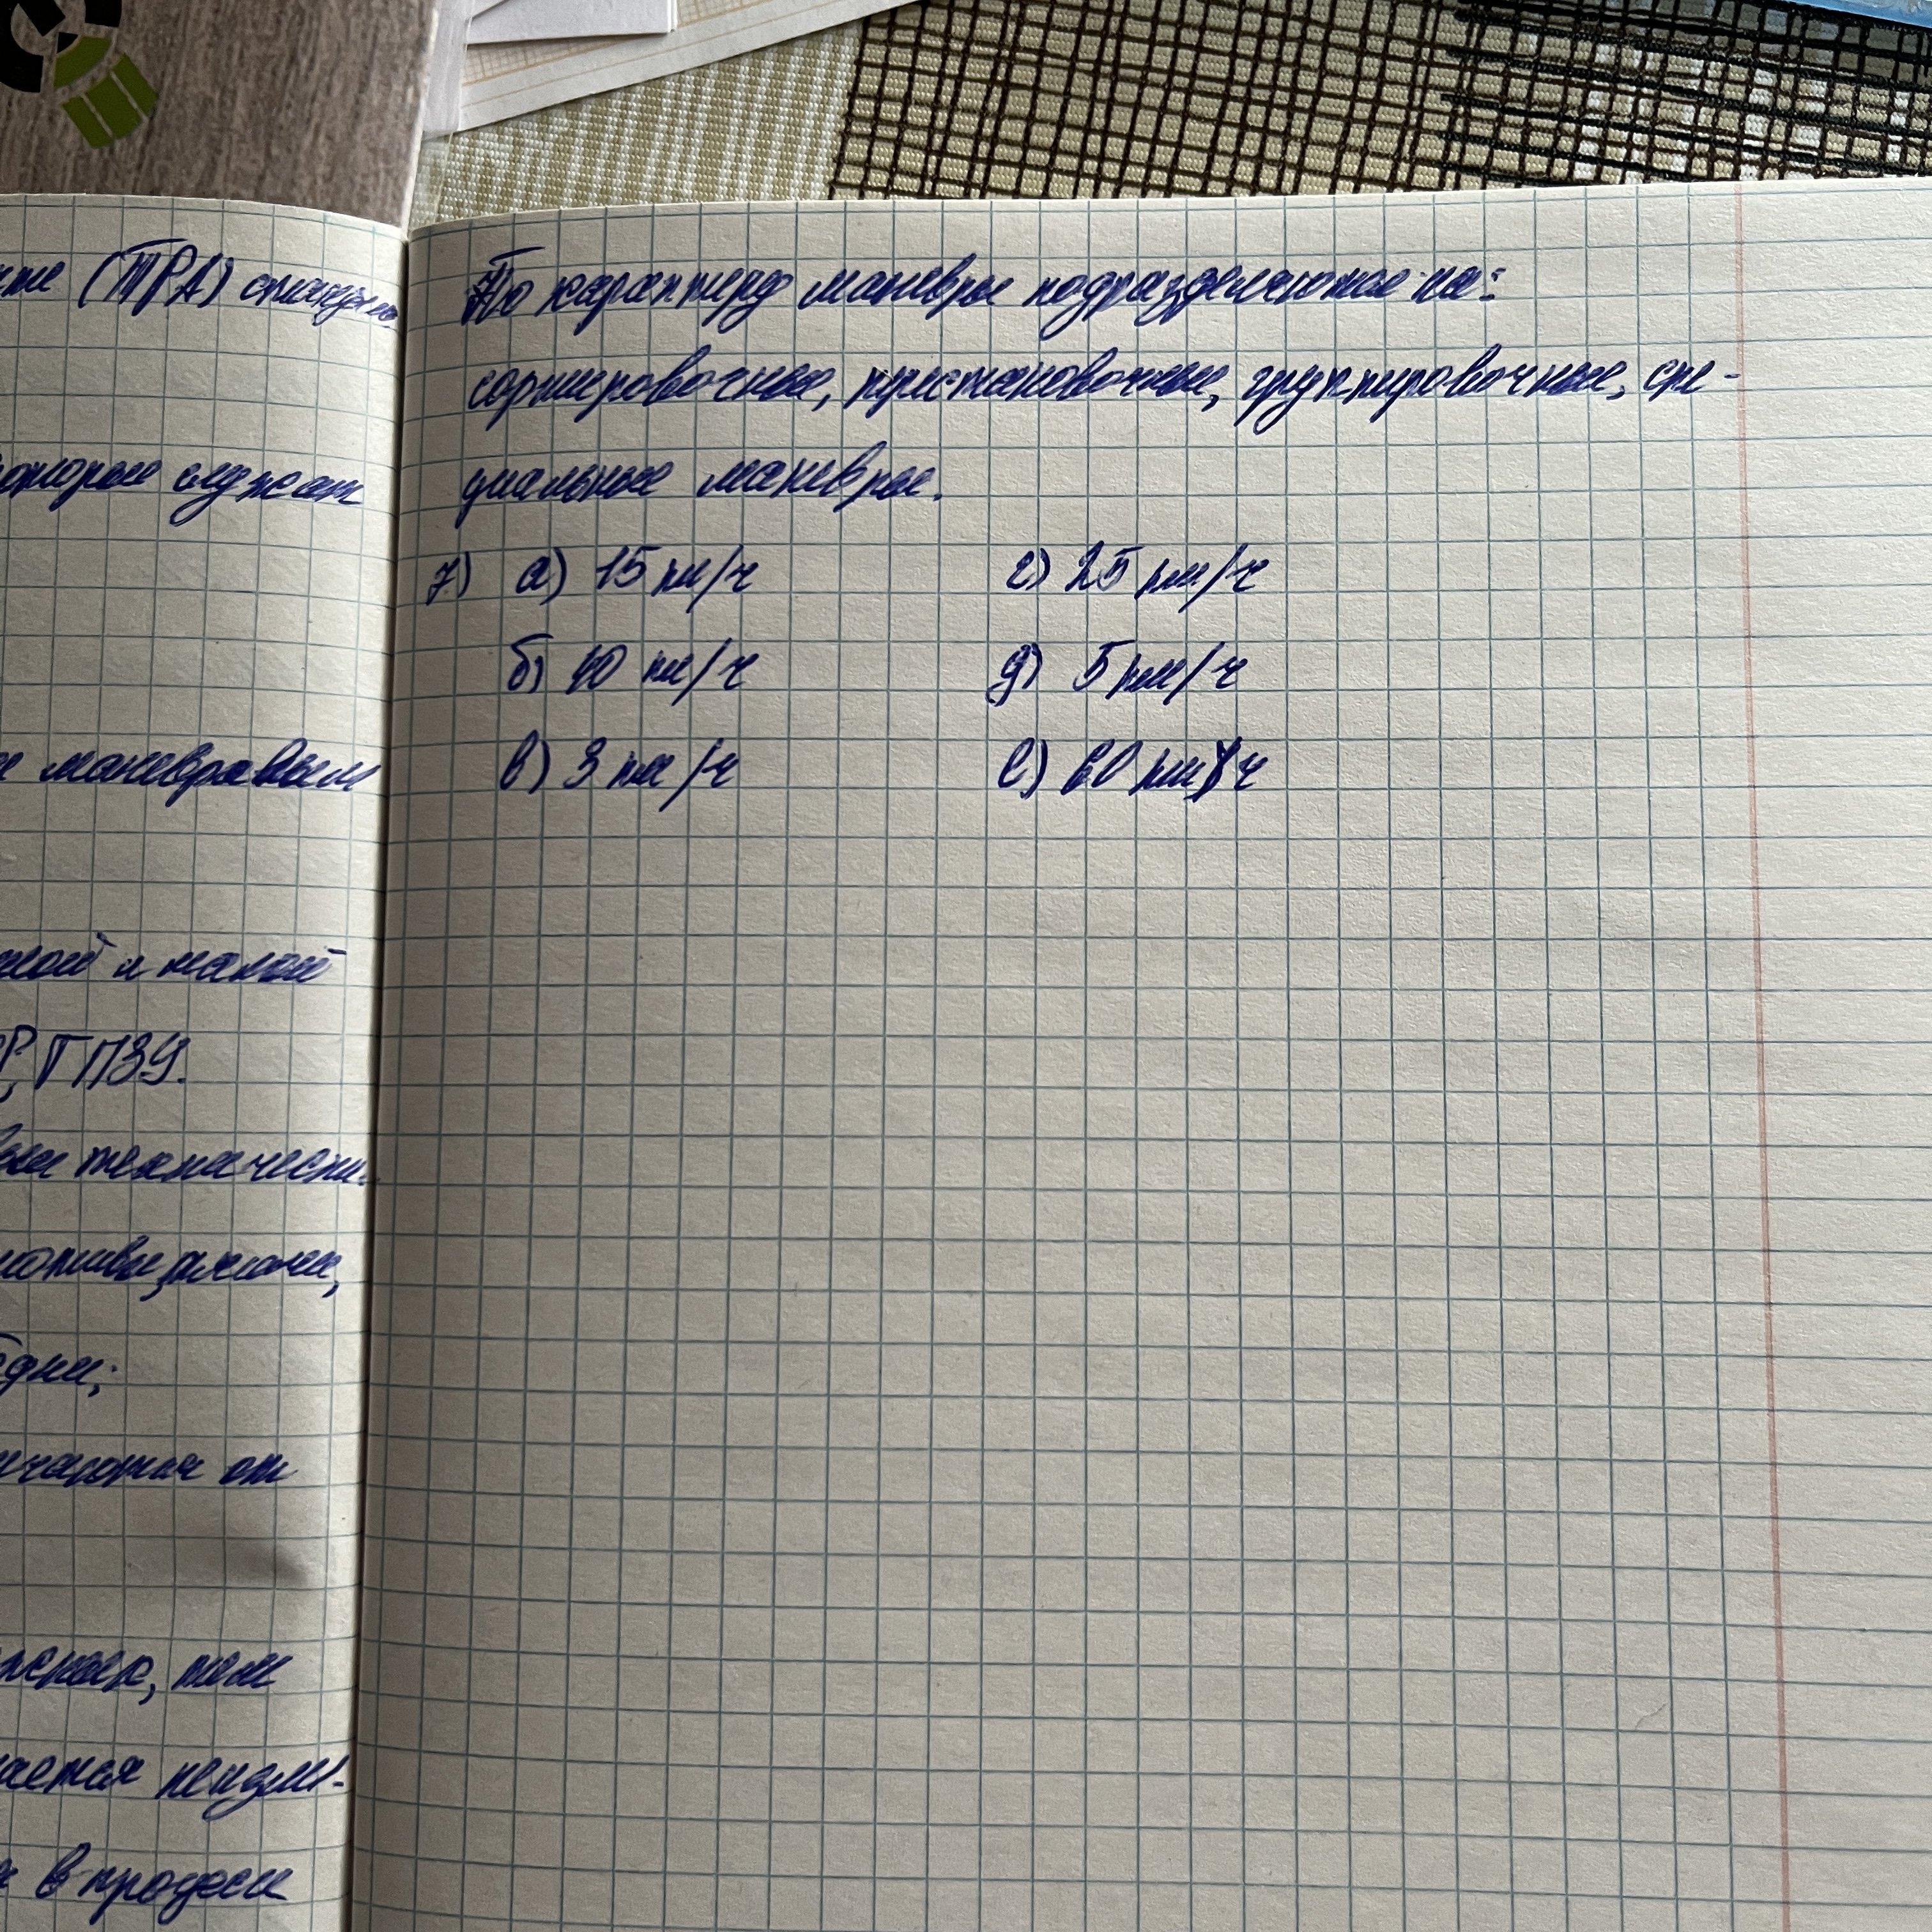 (ТРА) станции
которые служат
маневровым
ной и малой
Р, ГПЗУ.
технически-
одни;
от
тем
ается неизме-
в процессе
По характеру маневры подразделяются на:
сортировочные, перестановочные, группировочные, спе-
циальные маневры.
7) а) 15 км/ч г) 25 км/ч
б) 40 км/ч д) 5 км/ч
в) 3 км/ч е) 60 км/ч